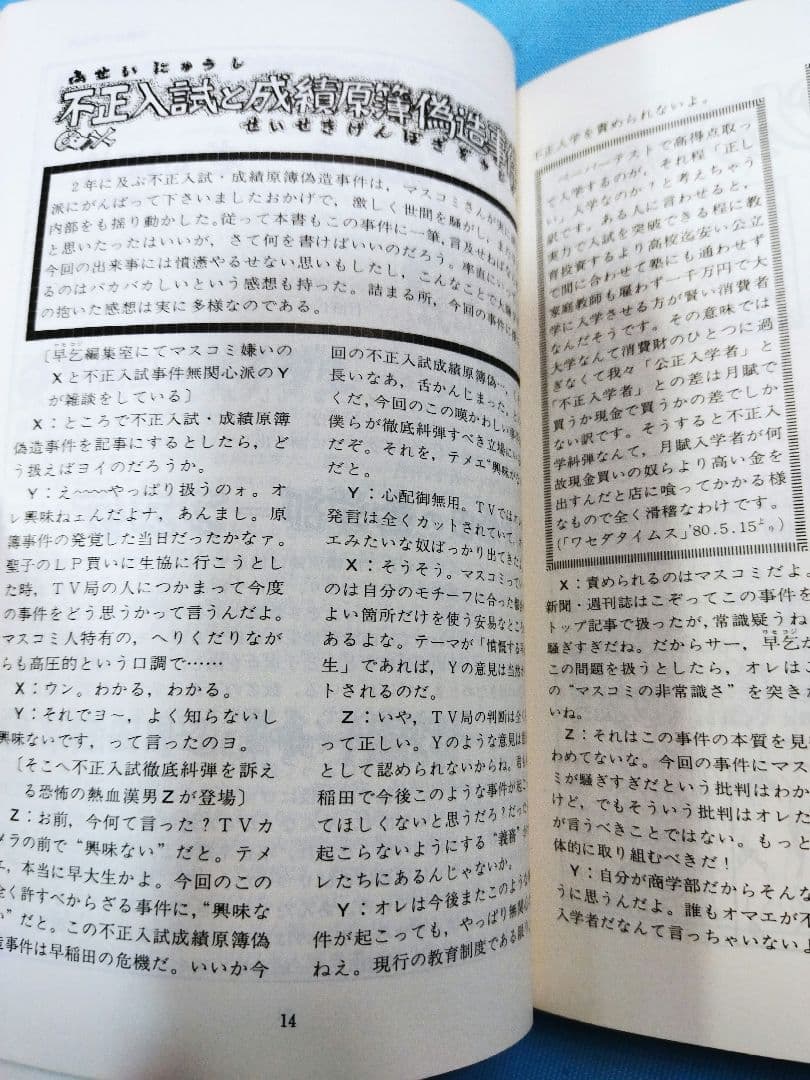 ふせいにゅうし
不正入試と成績原簿偽造事
せいせきげんぼぎぞう
2年に及ぶ不正入試・成績原簿偽造事件は,マスコミさんが実に
派にがんばって下さいましたおかげで,激しく世間を騒がし,また
内部をも揺り動かした。従って本書もこの事件に一筆,言及せねばな
と思いたったはいいが,さて何を書けばいいのだろう。率直にいっ
今回の出来事には憤懣やるせない思いもしたし,こんなことで大騒
るのはバカバカしいという感想も持った。詰まる所,今回の事件に
の抱いた感想は実に多様なのである。
〔早乞編集室にてマスコミ嫌いの
Xと不正入試事件無関心派のY
が雑談をしている〕
X:ところで不正入試・成績原簿
偽造事件を記事にするとしたら,ど
う扱えばヨイのだろうか。
Y:え〜〜〜やっぱり扱うのォ。オ
レ興味ねェんだよナ,あんまし。原
簿事件の発覚した当日だったかなァ。
聖子のLP買いに生協に行こうとし
た時,TV局の人につかまって今度
の事件をどう思うかって言うんだよ。
マスコミ人特有の,へりくだりなが
らも高圧的という口調で……
X:ウン。わかる,わかる。
Y:それでヨ〜,よく知らないし
興味ないです,って言ったのヨ。
〔そこへ不正入試徹底糾弾を訴え
る恐怖の熱血漢男Zが登場〕
Z:お前,今何て言った?TVカ
メラの前で“興味ない”だと。テメ
エ,本当に早大生かよ。今回のこの
全く許すべからざる事件に,“興味な
い”だと。この不正入試成績原簿偽
造事件は早稲田の危機だ。いいか今
回の不正入試成績原簿偽…
長いなあ,舌かんじまった。
くだ,今回のこの嘆かわしい事
僕らが徹底糾弾すべき立場にい
だぞ。それを,テメエ“興味が
だと。
Y:心配御無用。TVでは
発言は全くカットされていて,
エみたいな奴ばっかり出てきた
X:そうそう。マスコミって
のは自分のモチーフに合った
よい箇所だけを使う安易なところ
あるよな。テーマが「憤慨する
生」であれば,Yの意見は当然
トされるのだ。
Z:いや,TV局の判断は全
って正しい。Yのような意見は
として認められないからね。
稲田で今後このような事件が起こ
てほしくないと思うだろ?だっ
起こらないようにする“義務”が
レたちにあるんじゃないか。
Y:オレは今後またこのような
件が起こっても,やっぱり無関心
ねえ。現行の教育制度である限り
14
不正入学を責められないよ。
ペーパーテストで高得点取っ
て入学するのが,それ程「正し
い」入学なのか?と考えちゃう
訳です。ある人に言わせると,
実力で入試を突破できる程に教
育投資するより高校迄安い公立
で間に合わせて塾にも通わせず
家庭教師も雇わず一千万円で大
学に入学させる方が賢い消費者
なんだそうです。その意味では
大学なんて消費財のひとつに過
ぎなくて我々「公正入学者」と
「不正入学者」との差は月賦で
買うか現金で買うかの差でしか
ない訳です。そうすると不正入
学糾弾なんて,月賦入学者が何
故現金買いの奴らより高い金を
出すんだと店に喰ってかかる様
なもので全く滑稽なわけです。
(「ワセダタイムス」'80.5.15より)
X:責められるのはマスコミだよ。
新聞・週刊誌はこぞってこの事件を
トップ記事で扱ったが,常識疑うね
騒ぎすぎだね。だからサー,早乞が
この問題を扱うとしたら,オレはこ
の“マスコミの非常識さ”を突き
いね。
Z:それはこの事件の本質を見
わめてないな。今回の事件にマス
ミが騒ぎすぎだという批判はわか
けど,でもそういう批判はオレた
が言うべきことではない。もっと
体的に取り組むべきだ!
Y:自分が商学部だからそんな
うに思うんだよ。誰もオマエが不
入学者だなんて言っちゃいないよ